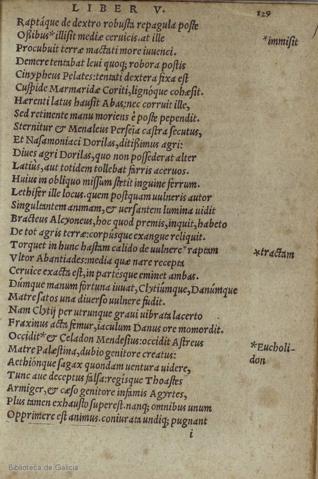 LIBER V.
129
Raptáque de dextro robusta repagula poste
Ossibus* illisit mediæ ceruicis. at ille
*immisit
Procubuit terræ mactati more iuuenci.
Demere tentabat leui quoq; robora postis
Cinypheus Pelates: tentati dextera fixa est
Cuspide Marmaridæ Coriti, lignóque cohæsit.
Hærenti latus hausit Abas: nec corruit ille,
Sed retinente manu moriens è poste pependit.
Sternitur & Menaleus Perseia castra secutus,
Et Nasamoniaci Dorilas, ditißimus agri:
Diues agri Dorilas, quo non possederat alter
Latiùs, aut totidem tollebat farris aceruos.
Huius in obliquo missum stetit inguine ferrum.
Lethifer ille locus. quem postquam uulneris autor
Singultantem animam, & uersantem lumina uidit
Bracteus Alcyoneus, hoc quod premis, inquit, habeto
De tot agris terræ: corpúsque exangue reliquit.
Torquet in hunc hastam calido de uulnere* raptam
*tractam
Vltor Abantiades: media quæ nare recepta
Ceruice exacta est, in partésque eminet ambas.
Dúmque manum fortuna iuuat, Clytiúmque, Danúmque
Matre satos una diuerso uulnere fudit.
Nam Clytij per utrunque graui uibrata lacerto
Fraxinus acta femur, iaculum Danus ore momordit.
Occidit* & Celadon Mendesius: occidit Astreus
*Eucholi-
don
Matre Palæstina, dubio genitore creatus:
Aethiónque sagax quondam uentura uidere,
Tunc aue deceptus falsa: regísque Thoastes
Armiger, & cæso genitore infamis Agyrtes,
Plus tamen exhausto superest. nanq; omnibus unum
Opprimere est animus. coniurata undiq; pugnant
i
Biblioteca de Galicia